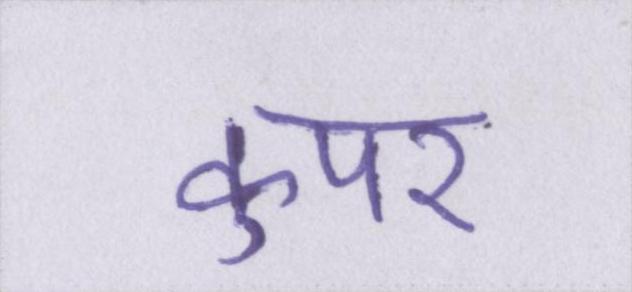 कुपर